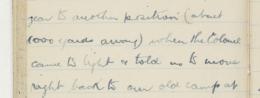 gear to another position (about
1000 yards away) when the Colonel
came to light & told us to move
right back to our old camp at